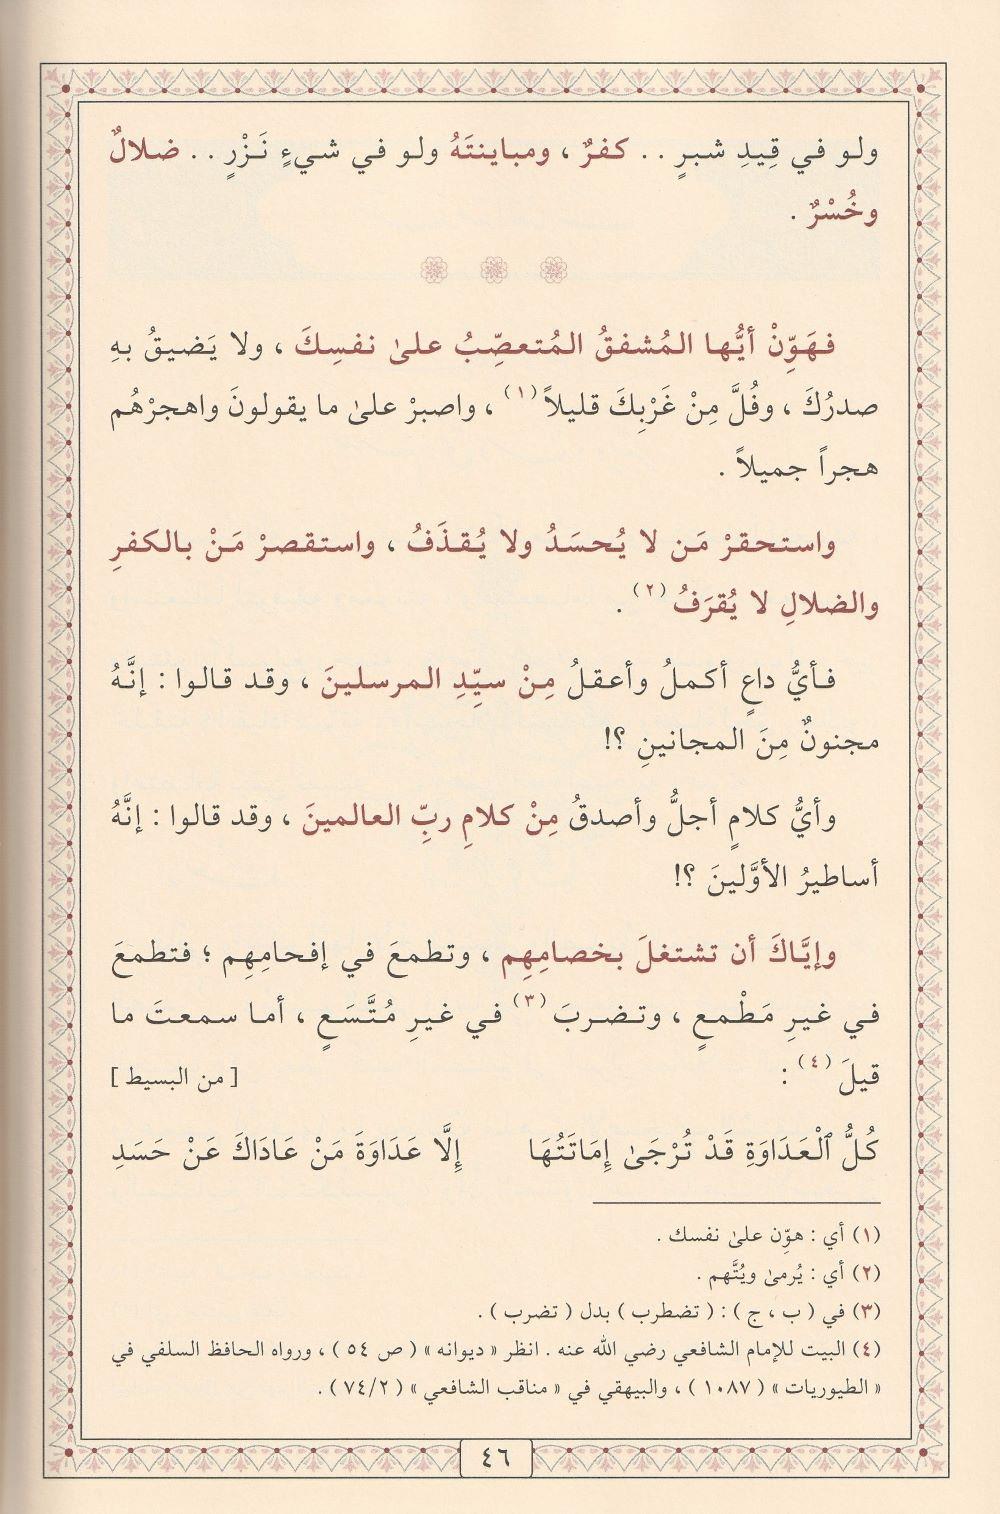 ولو في قِيدِ شبرٍ . . كفرٌ ، ومباينتَهُ ولو في شيءٍ نَزْرٍ . . ضلالٌ
وخُسْرٌ .
فهَوِّنْ أيُّها المُشفقُ المُتعصِّبُ علىٰ نفسِكَ ، ولا يَضيقُ بهِ
صدرُكَ ، وفُلَّ مِنْ غَرْبِكَ قليلاً (١) ، واصبرْ علىٰ ما يقولونَ واهجرْهُم
هجراً جميلاً .
واستحقرْ مَن لا يُحسَدُ ولا يُقذَفُ ، واستقصرْ مَنْ بالكفرِ
والضلالِ لا يُقرَفُ (٢) .
فأيُّ داعٍ أكملُ وأعقلُ مِنْ سيِّدِ المرسلينَ ، وقد قالوا : إنَّهُ
مجنونٌ مِنَ المجانينِ ؟!
وأيُّ كلامٍ أجلُّ وأصدقُ مِنْ كلامِ ربِّ العالمينَ ، وقد قالوا : إنَّهُ
أساطيرُ الأوَّلينَ ؟!
وإيَّاكَ أن تشتغلَ بخصامِهِم ، وتطمعَ في إفحامِهِم ؛ فتطمعَ
في غيرِ مَطْمعٍ ، وتضربَ (٣) في غيرِ مُتَّسَعٍ ، أما سمعتَ ما
قيلَ (٤) : [ من البسيط ]
كُلُّ ٱلْعَدَاوَةِ قَدْ تُرْجَىٰ إِمَاتَتُهَا إِلَّا عَدَاوَةَ مَنْ عَادَاكَ عَنْ حَسَدِ
(١) أي : هوِّن علىٰ نفسك .
(٢) أي : يُرمىٰ ويُتَّهم .
(٣) في ( ب ، ج ) : ( تضطرب ) بدل ( تضرب ) .
(٤) البيت للإمام الشافعي رضي الله عنه . انظر « ديوانه » ( ص ٥٤ ) ، ورواه الحافظ السلفي في
« الطيوريات » ( ١٠٨٧ ) ، والبيهقي في « مناقب الشافعي » ( ٧٤/٢ ) .
٤٦